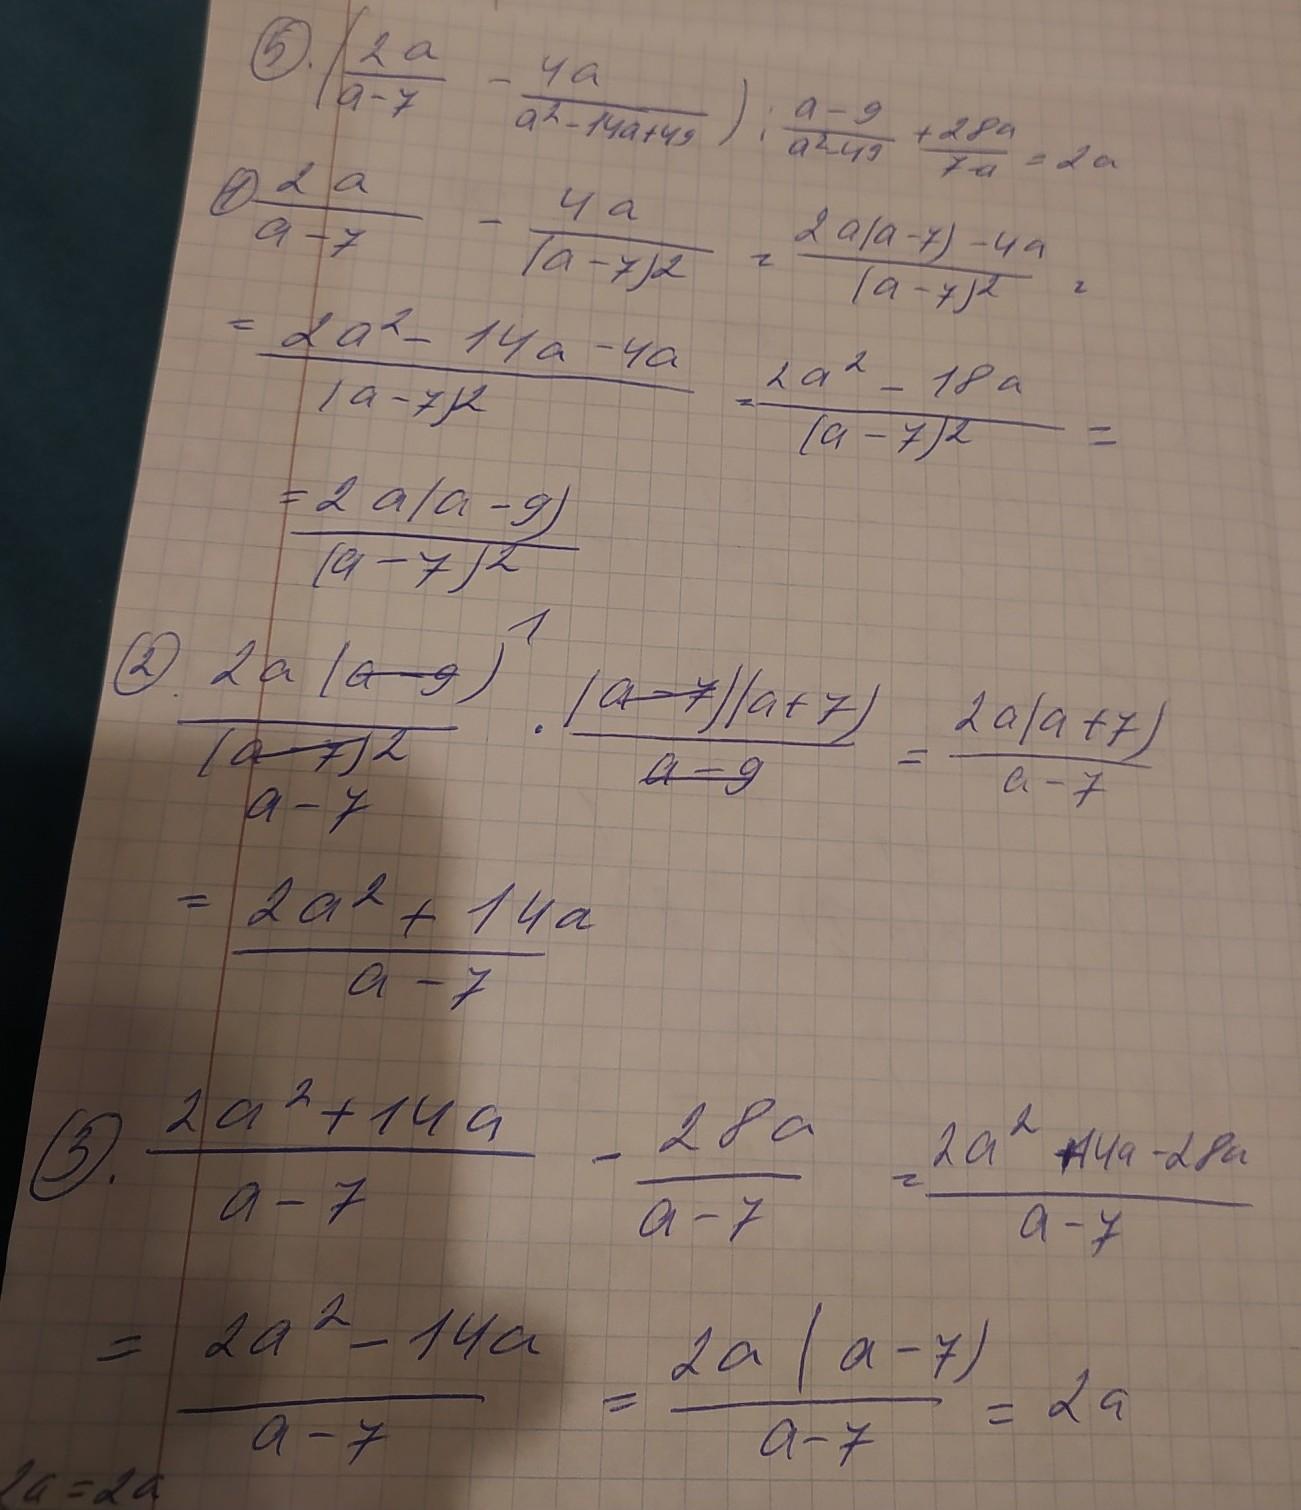 5. (2a/(a-7) - 4a/(a²-14a+49)) : (a-9)/(a²-49) + 28a/(7-a) = 2a
1 2a/(a-7) - 4a/(a-7)² = (2a(a-7)-4a)/(a-7)² =
= (2a²-14a-4a)/(a-7)² = (2a²-18a)/(a-7)² =
= 2a(a-9)/(a-7)²
2. 2a(a-9)¹/(a-7)² a-7 · (a-7)(a+7)/(a-9) = 2a(a+7)/(a-7)
= (2a²+14a)/(a-7)
3. (2a²+14a)/(a-7) - 28a/(a-7) = (2a²+14a-28a)/(a-7)
= (2a²-14a)/(a-7) = 2a(a-7)/(a-7) = 2a
2a=2a